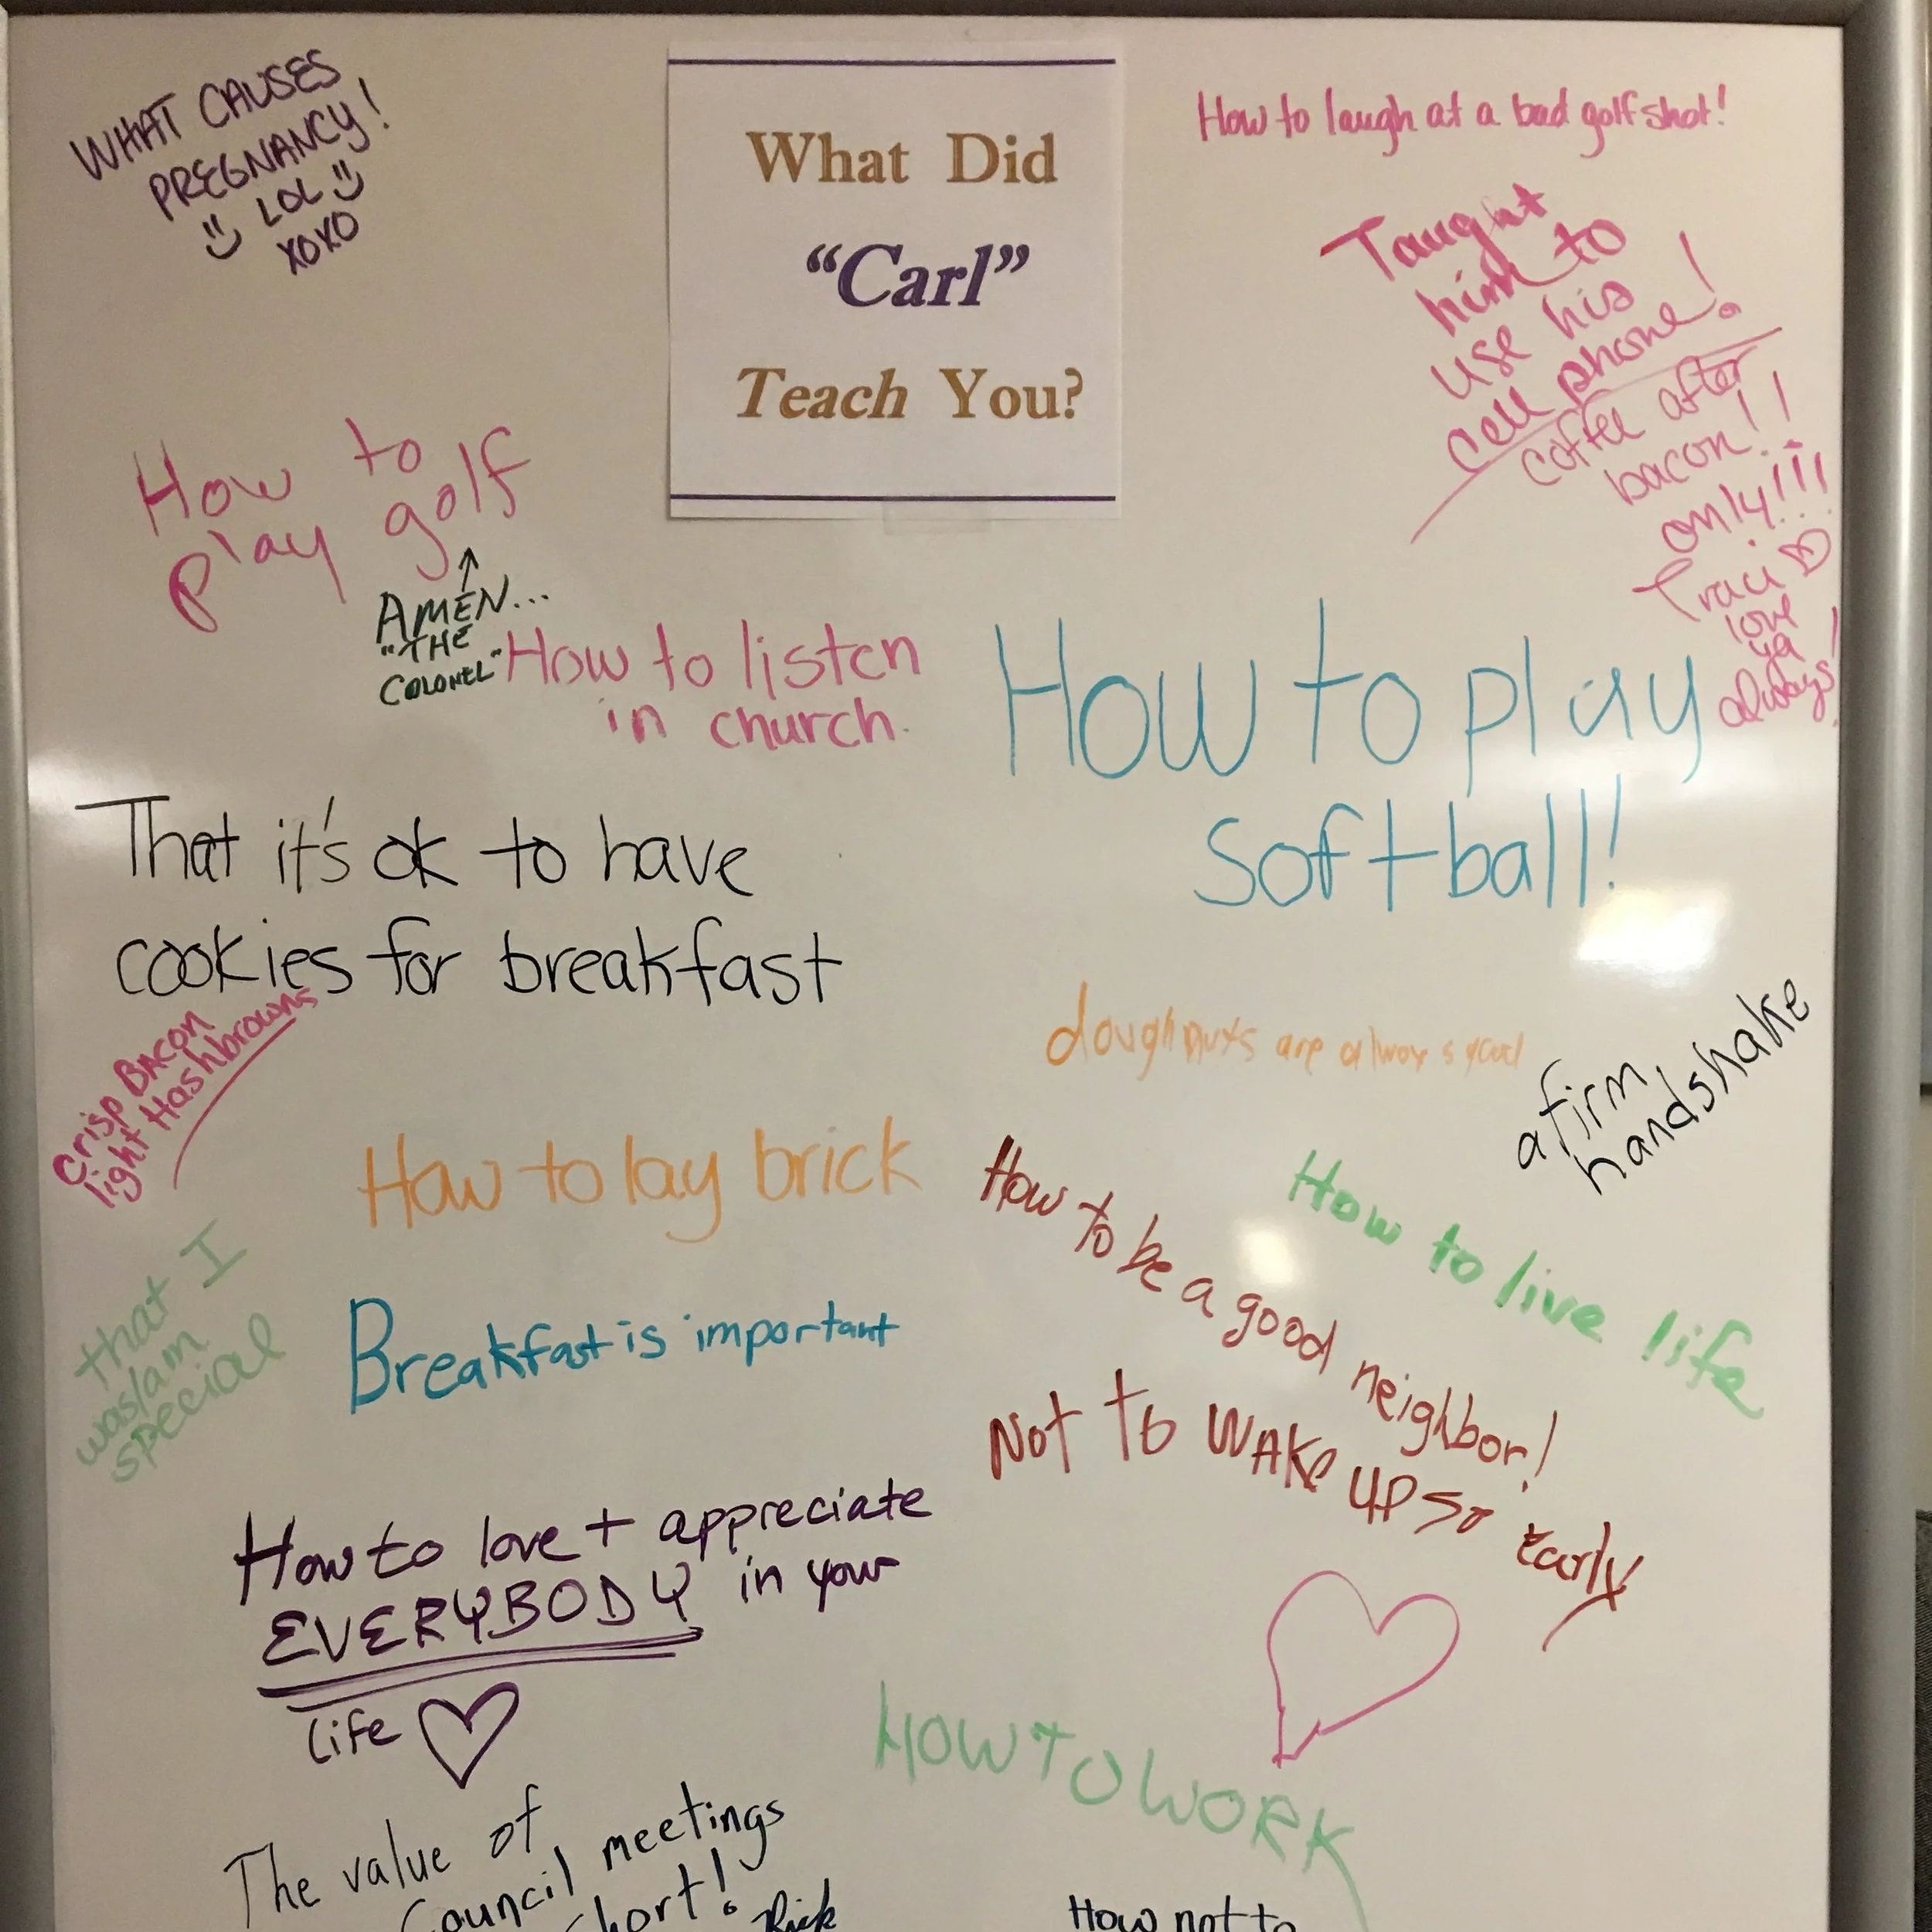 What Did
“Carl”
Teach You?
WHAT CAUSES
PREGNANCY!
LOL
XOXO
How to laugh at a bad golf shot!
Taught
him to
use his
cell phone!
coffee after
bacon!!
only!!!
Traci
love
ya
always!
How to
play golf
AMEN...
"THE
COLONEL"
How to listen
in church.
How to play
softball!
That it's ok to have
cookies for breakfast
doughnuts are always good
a firm
handshake
Crisp Bacon
light Hashbrowns
How to lay brick
How to be a good neighbor!
How to live life
that I
was/am
special
Breakfast is important
Not to WAKE UP So Early
How to love + appreciate
EVERYBODY in your
life
HOW TO WORK
The value of
Council meetings
short!
Rick
How not to